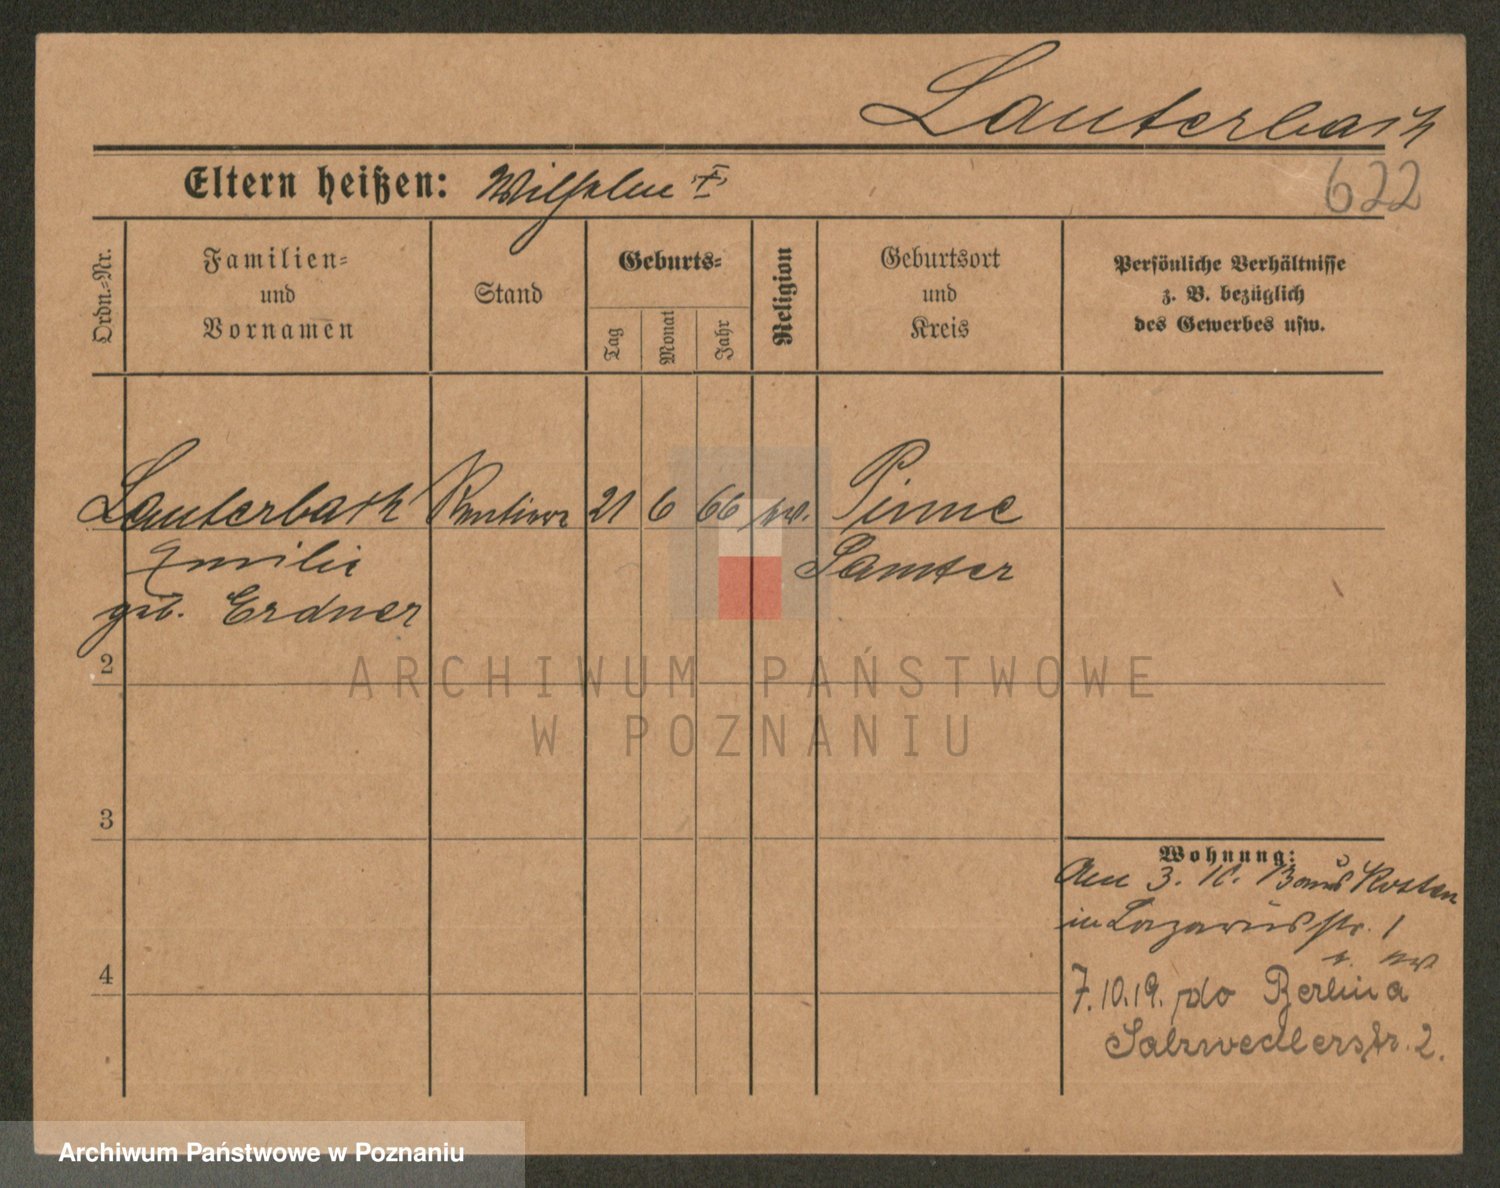 Lauterbach
Eltern heißen: Wilhelm
622
Ordn.-Nr.
Familien-
und
Vornamen
Stand
Geburts-
Tag
Monat
Jahr
Religion
Geburtsort
und
Kreis
Persönliche Verhältnisse
z. B. bezüglich
des Gewerbes usw.
Lauterbach
21
6
66
Pinne
Emilie
Samter
geb. Erdner
2
ARCHIWUM PAŃSTWOWE
W POZNANIU
3
Wohnung:
Am 3. 10. 13 aus Kosten
in Lazarusstr. 1
4
7.10.19. do Berlina
Salzwedlerstr. 2.
Archiwum Państwowe w Poznaniu